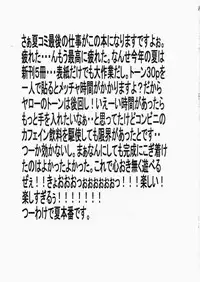 さぁ夏コミ最後の仕事がこの本になりますですよぉ。
疲れた・・・んもう最高に疲れた。なんせ今年の夏は
新刊5冊・・表紙だけでも大作業だし。トーン30pを
一人で貼るとメッチャ時間がかかりますよ？だから
ヤローのトーンは後回し！いえーい時間があったら
もっと手を入れたいなぁ～と思ってたけどコンビニの
カフェイン飲料を駆使しても限界があったとです・・
つーか効かないし。まぁなんにしても完成にこぎ着けた
のはよかったよかった。これで心おき無く遊べる
ぜぇ！！きょおおおっぉぉぉぉぉぉっ！！！楽しい！
楽しすぎるぅ！！！！！！！
つーわけで夏本番です。